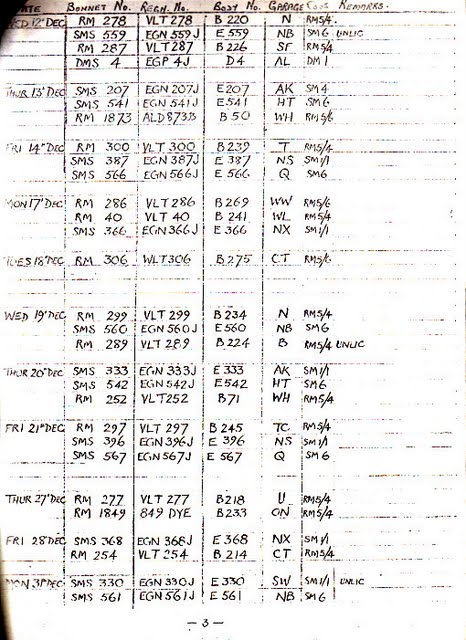 DATE BONNET No. REGN. No. BODY No. GARAGE CODE REMARKS.
WED 12th DEC RM 278 VLT 278 B 220 N RM5/4
SMS 559 EGN 559J E 559 NB SM6 UNLIC
RM 287 VLT 287 B 226 SF RM5/4
DMS 4 EGP 4J D4 AL DM1
THUR 13th DEC SMS 207 EGN 207J E207 AK SM4
SMS 541 EGN 541J E541 HT SM6
RM 1873 ALD 873B B 50 WH RM5/6
FRI 14th DEC RM 300 VLT 300 B239 T RM5/4
SMS 387 EGN 387J E 387 NS SM1/1
SMS 566 EGN 566J E 566 Q SM6
MON 17th DEC RM 286 VLT 286 B 269 WW RM5/6
RM 40 VLT 40 B 241 WL RM5/4
SMS 366 EGN 366J E 366 NX SM1/1
TUES 18th DEC RM 306 WLT 306 B 275 CT RM5/6
WED 19th DEC RM 299 VLT 299 B 234 N RM5/4
SMS 560 EGN 560J E 560 NB SM6
RM 289 VLT 289 B 224 B RM5/4 UNLIC
THUR 20th DEC SMS 333 EGN 333J E 333 AK SM1/1
SMS 542 EGN 542J E542 HT SM6
RM 252 VLT 252 B71 WH RM5/4
FRI 21st DEC RM 297 VLT 297 B 245 TC RM5/4
SMS 396 EGN 396J E 396 NS SM1/1
SMS 567 EGN 567J E 567 Q SM6
THUR 27th DEC RM 277 VLT 277 B218 U RM5/4
RM 1849 849 DYE B233 ON RM5/4
FRI 28th DEC SMS 368 EGN 368J E 368 NX SM1/1
RM 254 VLT 254 B 214 CT RM5/4
MON 31st DEC SMS 330 EGN 330J E 330 SW SM1/1 UNLIC
SMS 561 EGN 561J E 561 NB SM6
— 3 —